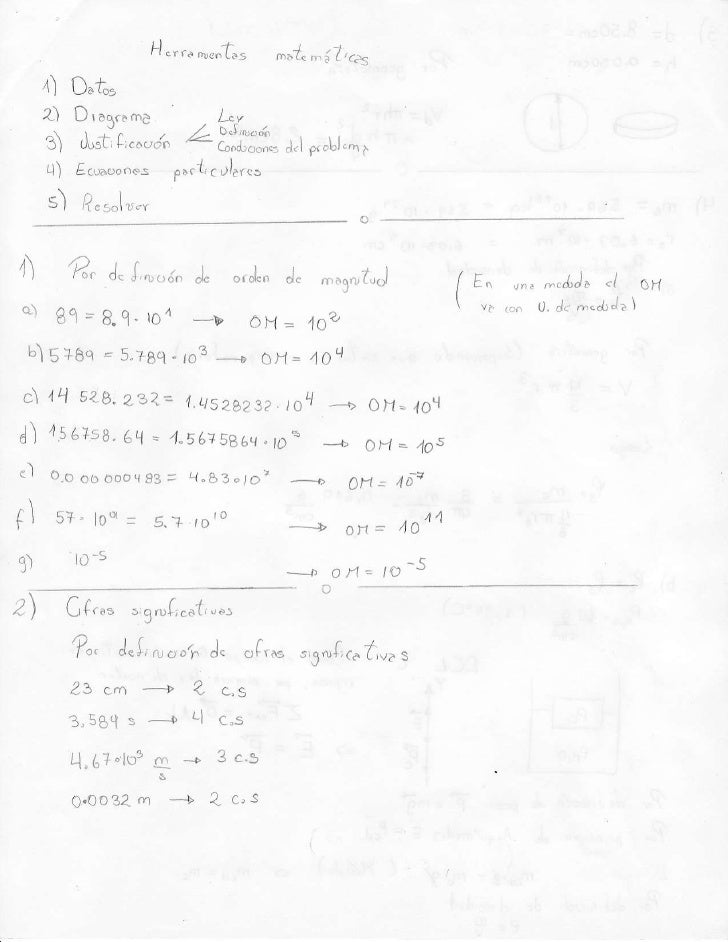 Herramientas matemáticas
1) Datos
2) Diagrama
3) Justificación < Ley
Definición
Condiciones del problema
4) Ecuaciones particulares
5) Resolver
1) Por definición de orden de magnitud (En una medida el OM
va con U. de medida)
a) 89 = 8.9 · 10¹ → OM = 10²
b) 5789 = 5.789 · 10³ → OM = 10⁴
c) 14 528.232 = 1.4528232 · 10⁴ → OM = 10⁴
d) 156758.64 = 1.5675864 · 10⁵ → OM = 10⁵
e) 0.0 00 000483 = 4.83 · 10⁷ → OM = 10⁻⁷
f) 57 · 10⁹ = 5.7 · 10¹⁰ → OM = 10¹¹
g) 10⁻⁵ → OM = 10⁻⁵
2) Cifras significativas
Por definición de cifras significativas
23 cm → 2 c.s
3.589 s → 4 c.s
4.67 · 10³ m/s → 3 c.s
0.0032 m → 2 c.s